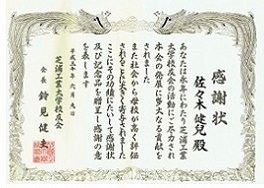 感謝状
佐々木 健兒 殿
あなたは多年にわたり芝浦工業
大学校友会の活動にご尽力され
本会の発展に多大なる貢献を
されました
また社会から母校が高く評価
されることに大きく寄与されました
ここにその功績にたいして感謝状
及び記念品を贈呈し感謝の意
を表します
平成二十 年 六月 九日
芝浦工業大学校友会
会長 鈴見 健